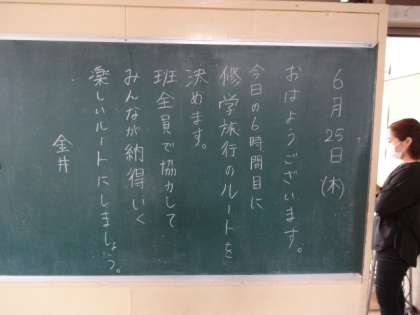 6月25日(木)
おはようございます。
今日の6時間目に
修学旅行のルートを
決めます。
班全員で協力して
みんなが納得いく
楽しいルートにしましょう。
金井